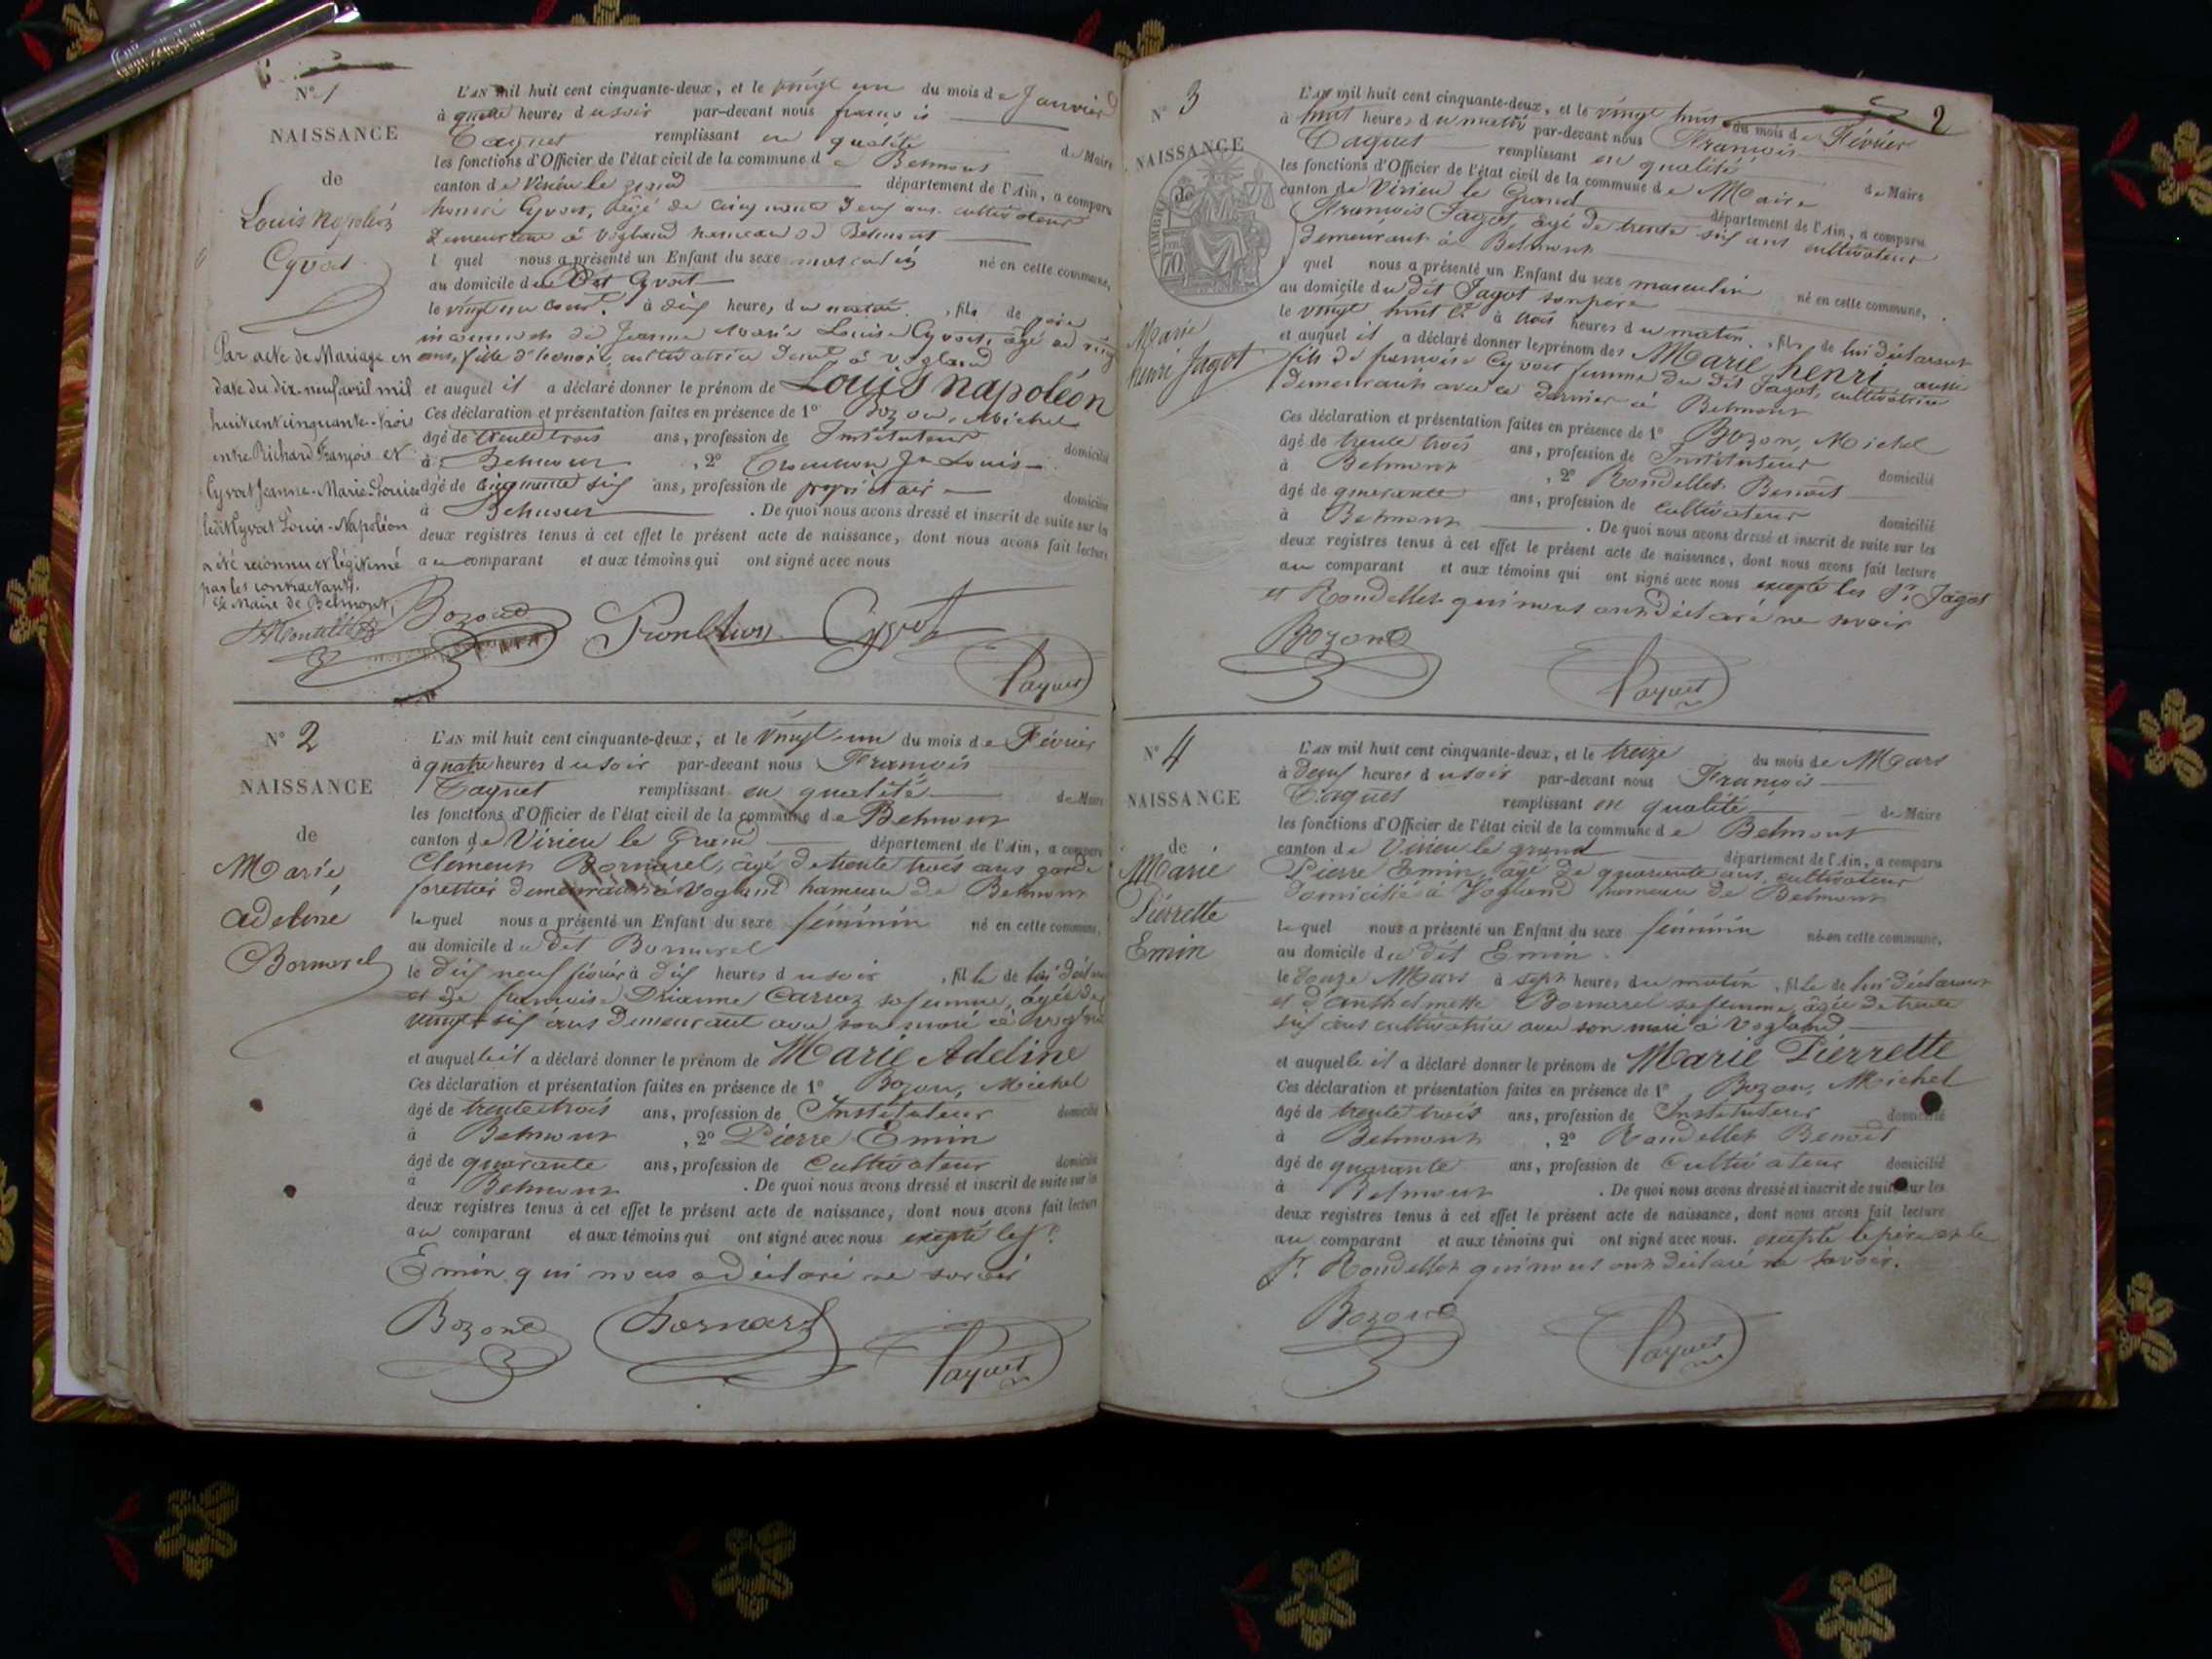 N° 1
NAISSANCE
de
Louis Napoléon
Cyvoct
Par acte de Mariage en
date du dix-neuf avril mil
huit cent cinquante-trois
entre Richard François et
Cyvoct Jeanne-Marie-Louise
ledit Cyvoct Louis-Napoléon
a été reconnu et légitimé
par les contractants.
Le Maire de Belmont,
L'AN mil huit cent cinquante-deux, et le vingt un du mois de Janvier
à quatre heures du soir par-devant nous françois
remplissant en qualité de Maire
les fonctions d'Officier de l'état civil de la commune de Belmont
canton de Virieu le grand département de l'Ain, a comparu
Cyvoct, âgé de cinquante neuf ans cultivateur
demeurant à Vogland hameau de Belmont
l quel nous a présenté un Enfant du sexe masculin né en cette commune,
au domicile du dit Cyvoct
le vingt un à dix heures du matin, fils de père
inconnu et de Jeanne Marie Louise Cyvoct, âgé de vingt
ans, fille d'honoré, cultivatrice à Vogland
et auquel il a déclaré donner le prénom de Louis napoléon
Ces déclaration et présentation faites en présence de 1° Bozon, Michel
âgé de trente trois ans, profession de Instituteur domicilié
à Belmont, 2° Jn Louis
âgé de cinquante six ans, profession de propriétaire domicilié
à Belmont. De quoi nous avons dressé et inscrit de suite sur les
deux registres tenus à cet effet le présent acte de naissance, dont nous avons fait lecture
au comparant et aux témoins qui ont signé avec nous
Bozon Cyvoct
N° 2
NAISSANCE
de
Marie
adeline
Bornarel
L'AN mil huit cent cinquante-deux, et le vingt-un du mois de Février
à quatre heures du soir par-devant nous François
remplissant en qualité de Maire
les fonctions d'Officier de l'état civil de la commune de Belmont
canton de Virieu le Grand département de l'Ain, a comparu
Clement Bornarel, âgé de trente trois ans garde
forestier demeurant à Vogland hameau de Belmont
lequel nous a présenté un Enfant du sexe féminin né en cette commune,
au domicile du dit Bornarel
le dix neuf février à dix heures du soir, fille de lui déclarant
et de françoise Carraz sa femme, âgée de
vingt six ans demeurant avec son mari à Vogland
et auquelle il a déclaré donner le prénom de Marie Adeline
Ces déclaration et présentation faites en présence de 1° Bozon, Michel
âgé de trente trois ans, profession de Instituteur domicilié
à Belmont, 2° Pierre Emin
âgé de quarante ans, profession de Cultivateur domicilié
à Belmont. De quoi nous avons dressé et inscrit de suite sur les
deux registres tenus à cet effet le présent acte de naissance, dont nous avons fait lecture
au comparant et aux témoins qui ont signé avec nous excepté le Sr
Emin qui nous a déclaré ne savoir
Bozon Bornarel
2
N° 3
NAISSANCE
de
TIMBRE
70
Marie
henri Jagot
L'AN mil huit cent cinquante-deux, et le vingt huit du mois de Février
à huit heures du matin par-devant nous François
remplissant en qualité de Maire
les fonctions d'Officier de l'état civil de la commune de Maire
canton de Virieu le Grand département de l'Ain, a comparu
François Jagot, âgé de trente six ans cultivateur
demeurant à Belmont
quel nous a présenté un Enfant du sexe masculin né en cette commune,
au domicile du dit Jagot son père
le vingt huit à trois heures du matin, fils de lui déclarant
et auquel il a déclaré donner les prénom des Marie henri
fils de françoise Cyvoct femme du dit Jagot, cultivatrice aussi
demeurant avec ce dernier à Belmont
Ces déclaration et présentation faites en présence de 1° Bozon, Michel
âgé de trente trois ans, profession de Instituteur domicilié
à Belmont, 2° Rondellet Benoit
âgé de quarante ans, profession de cultivateur domicilié
à Belmont. De quoi nous avons dressé et inscrit de suite sur les
deux registres tenus à cet effet le présent acte de naissance, dont nous avons fait lecture
au comparant et aux témoins qui ont signé avec nous excepté les Sr Jagot
et Rondellet qui nous ont déclaré ne savoir
Bozon
N° 4
NAISSANCE
de
Marie
Pierrette
Emin
L'AN mil huit cent cinquante-deux, et le treize du mois de Mars
à deux heures du soir par-devant nous François
remplissant en qualité de Maire
les fonctions d'Officier de l'état civil de la commune de Belmont
canton de Virieu le grand département de l'Ain, a comparu
Pierre Emin, âgé de quarante ans, cultivateur
domicilié à Vogland hameau de Belmont
lequel nous a présenté un Enfant du sexe féminin né en cette commune,
au domicile du dit Emin
le douze Mars à sept heures du matin, fille de lui déclarant
et d'Anthelmette Bornarel sa femme, âgée de trente
six ans cultivatrice avec son mari à Vogland
et auquelle il a déclaré donner le prénom de Marie Pierrette
Ces déclaration et présentation faites en présence de 1° Bozon, Michel
âgé de trente trois ans, profession de Instituteur domicilié
à Belmont, 2° Rondellet Benoit
âgé de quarante ans, profession de Cultivateur domicilié
à Belmont. De quoi nous avons dressé et inscrit de suite sur les
deux registres tenus à cet effet le présent acte de naissance, dont nous avons fait lecture
au comparant et aux témoins qui ont signé avec nous. excepté le père et le
Sr Rondellet qui nous ont déclaré ne savoir.
Bozon